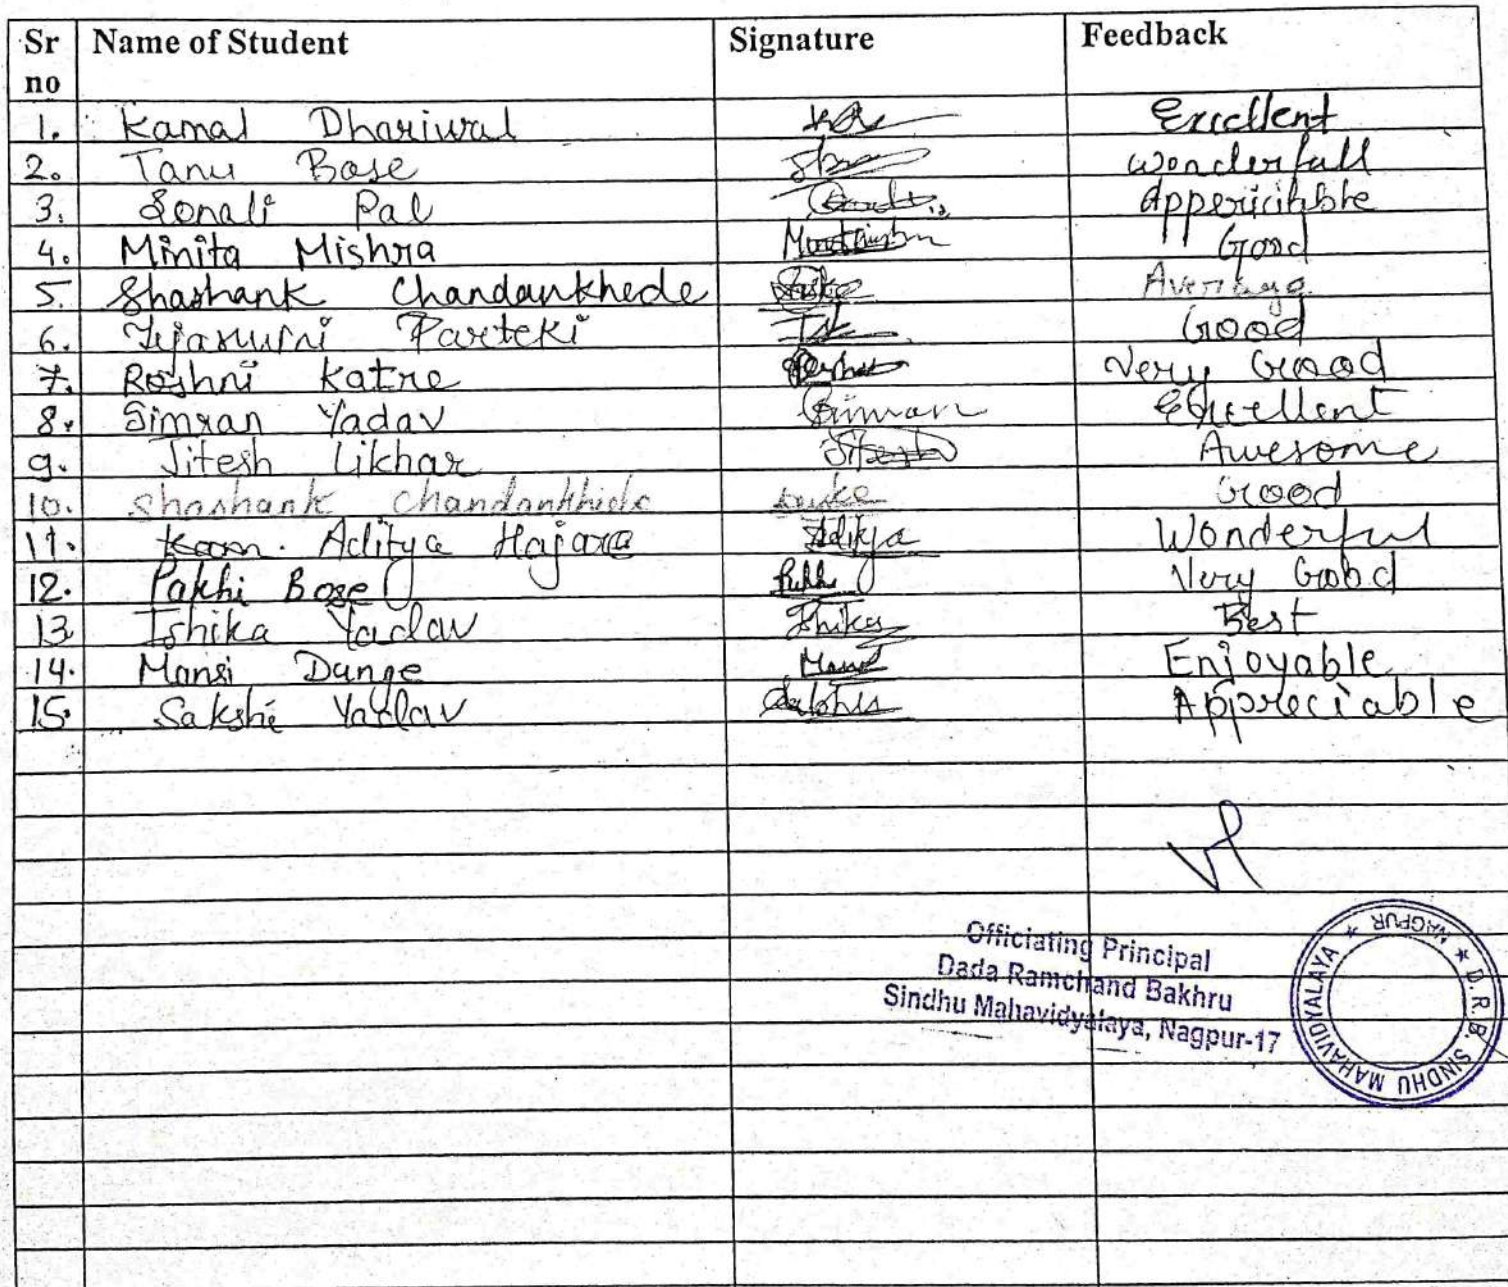 Sr no Name of Student Signature Feedback
1. Kamal Dhariwal Excellent
2. Tanu Bose wonderfull
3. Sonali Pal Appericibble
4. Minita Mishra Good
5. Shashank Chandankhede Average
6. Tejaswini Parteki Good
7. Roshni Katre Very Good
8. Simran Yadav Simran Excellent
9. Jitesh Likhar Jitesh Awesome
10. Shashank Chandankhede Good
11. Aditya Hajare Aditya Wonderful
12. Pakhi Bose Very Good
13 Ishika Yadav Best
14. Mansi Dange Enjoyable
15. Sakshi Yadav Appreciable
Officiating Principal
Dada Ramchand Bakhru
Sindhu Mahavidyalaya, Nagpur-17
D. R. B. SINDHU MAHAVIDYALAYA ★ NAGPUR ★